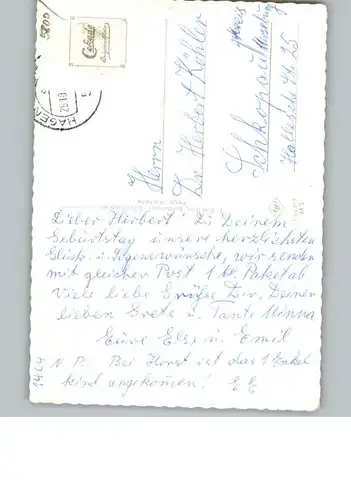 5800
Cekade
Originalfoto
HAGEN
28.10
Herrn
Dr. Herbert Köhler
Schkopau
Kreis
Merseburg
Hallesche Str. 25
Lieber Herbert! Zu Deinem
Geburtstag unsere herzlichsten
Glück- u. Segenswünsche, wir senden
mit gleicher Post 1 kl. Paket ab
Viele liebe Grüße Dir, Deinen
lieben Grete u. Tante Minna
Eure Else u. Emil
N P. Bei Horst ist das 1 Enkel
kind angekommen! E E